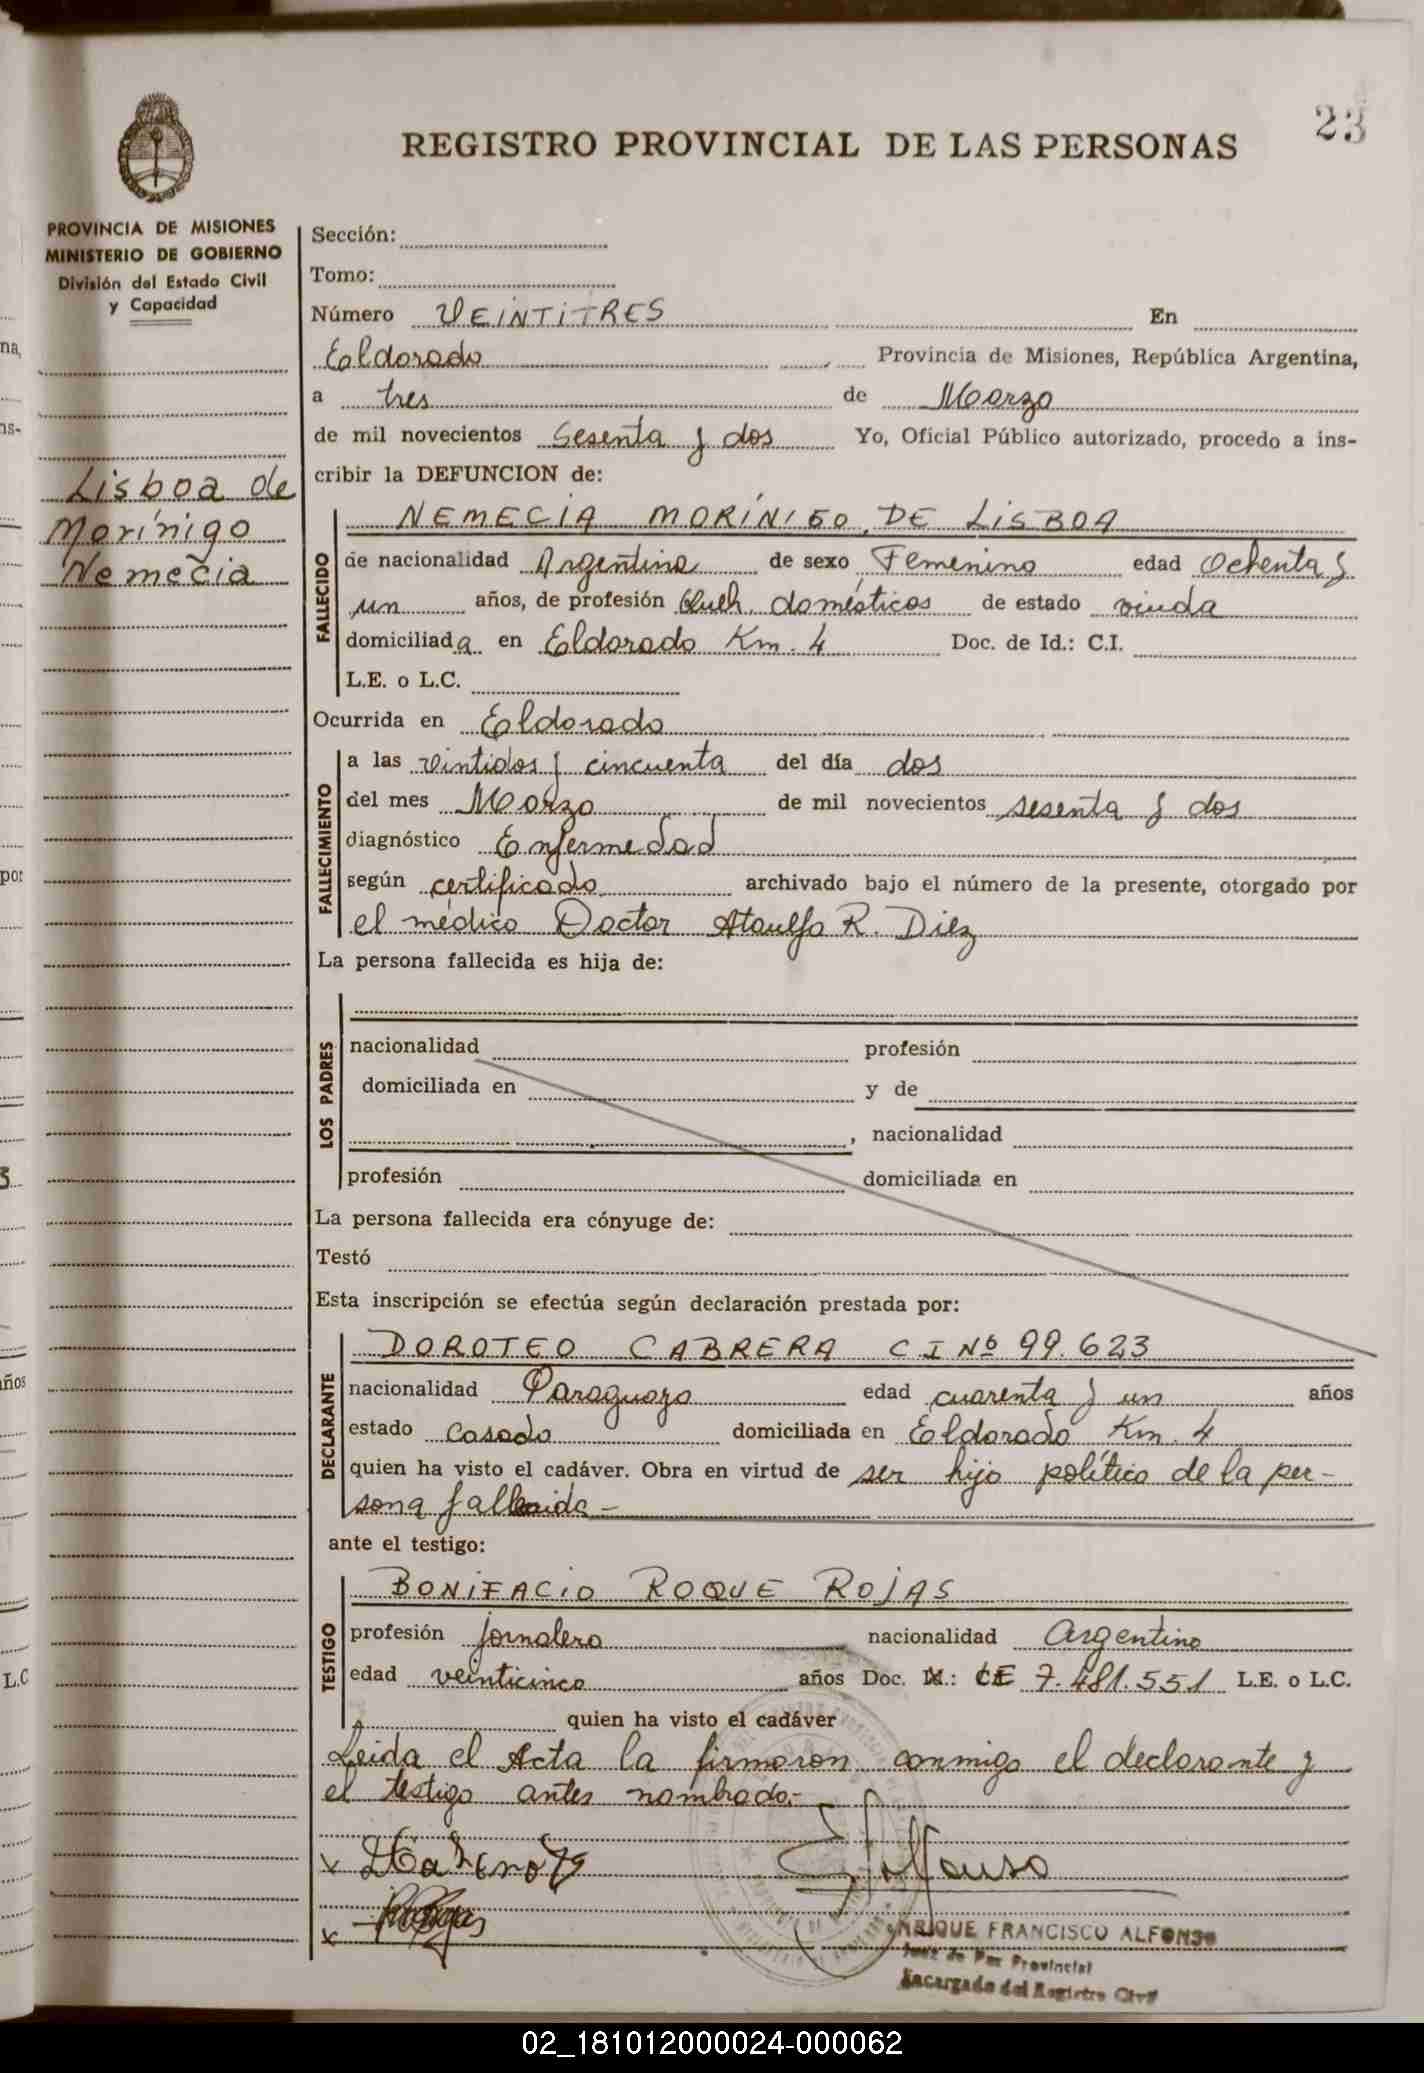 23
REGISTRO PROVINCIAL DE LAS PERSONAS
PROVINCIA DE MISIONES
MINISTERIO DE GOBIERNO
División del Estado Civil
y Capacidad
Lisboa de
Morínigo
Nemecia
Sección:
Tomo:
Número VEINTITRES En
Eldorado Provincia de Misiones, República Argentina,
a tres de Marzo
de mil novecientos Sesenta y dos Yo, Oficial Público autorizado, procedo a ins-
cribir la DEFUNCION de:
FALLECIDO
NEMECIA MORÍNIGO DE LISBOA
de nacionalidad Argentina de sexo Femenino edad Ochenta y
un años, de profesión Queh. domésticos de estado viuda
domiciliada en Eldorado Km. 4 Doc. de Id.: C.I.
L.E. o L.C.
Ocurrida en Eldorado
FALLECIMIENTO
a las vintidos y cincuenta del día dos
del mes Marzo de mil novecientos sesenta y dos
diagnóstico Enfermedad
según certificado archivado bajo el número de la presente, otorgado por
el médico Doctor Ataulfo R. Diez
La persona fallecida es hija de:
LOS PADRES
nacionalidad profesión
domiciliada en y de
, nacionalidad
profesión domiciliada en
La persona fallecida era cónyuge de:
Testó
Esta inscripción se efectúa según declaración prestada por:
DECLARANTE
DOROTEO CABRERA C I Nº 99.623
nacionalidad Paraguayo edad cuarenta y un años
estado Casado domiciliada en Eldorado Km. 4
quien ha visto el cadáver. Obra en virtud de ser hijo político de la per-
sona fallecida -
ante el testigo:
TESTIGO
BONIFACIO ROQUE ROJAS
profesión jornalero nacionalidad Argentino
edad veinticinco años Doc. M.: LE 7.481.551 L.E. o L.C.
quien ha visto el cadáver
Leida el Acta la firmaron conmigo el declarante y
el testigo antes nombrado.-
x
x
ENRIQUE FRANCISCO ALFONSO
Juez de Paz Provincial
Encargado del Registro Civil
02_181012000024-000062